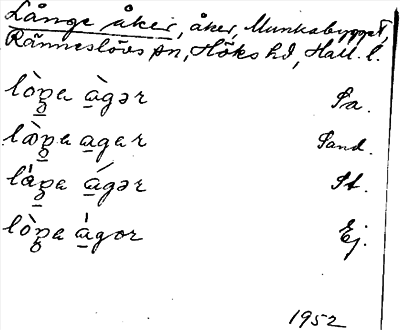 Långe åker, åker, Munkabygget,
Ränneslövs sn, Höks hd, Hall. l.
lòŋa àgər Sa.
læ̀ŋa agar Sand.
láŋa ágər St.
lòŋa ágor Ej.
1952